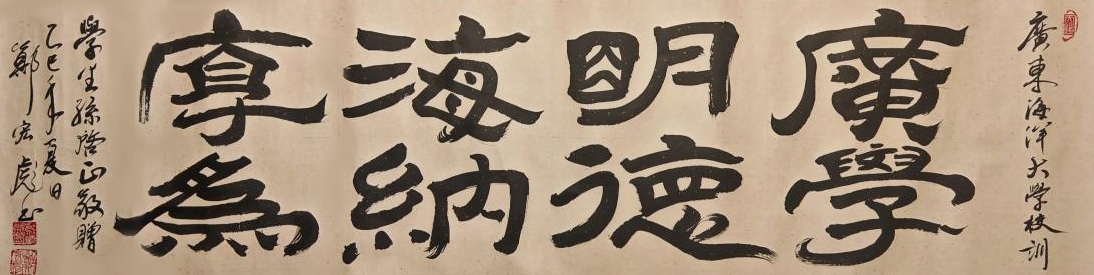 廣東海洋大學校訓
廣學
明德
海納
厚為
學生孫啓正敬贈
乙巳年夏日
鄭宏彪书